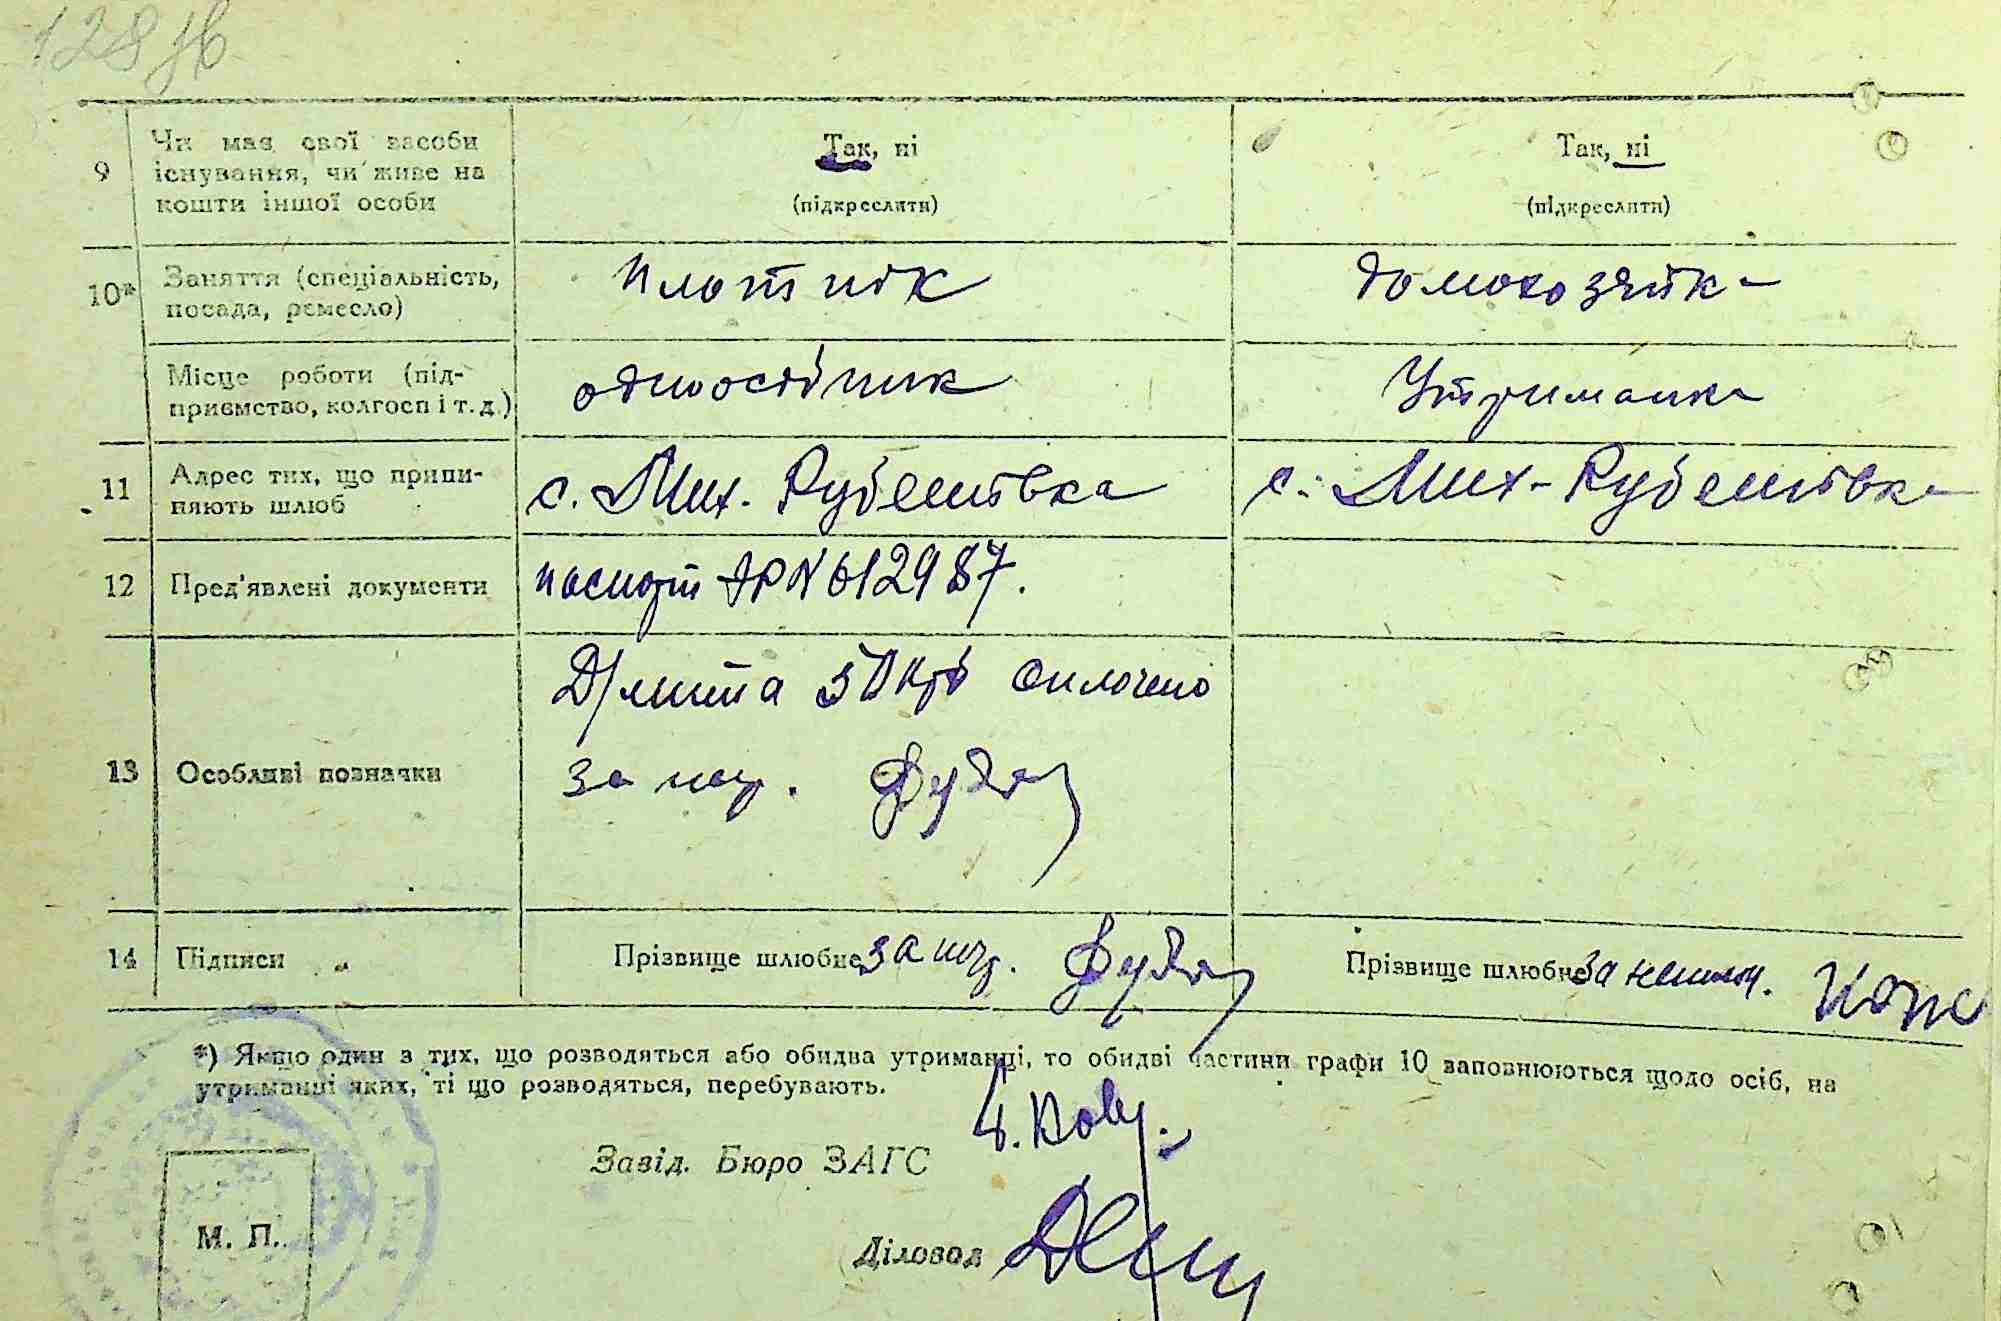 128 зв
9 Чи має свої засоби існування, чи живе на кошти іншої особи
Так, ні
(підкреслити)
Так, ні
(підкреслити)
10* Заняття (спеціальність, посада, ремесло)
плотнік
домохозяйка
Місце роботи (підприємство, колгосп і т. д.)
одноосібник
Утриманка
11 Адрес тих, що припиняють шлюб
с. Мих. Рубешівка
с. Мих-Рубешівка
12 Пред'явлені документи
паспорт АР № 612987.
13 Особливі позначки
Д/мита 50 крб сплочено
за
14 Підписи
Прізвище шлюбне
Прізвище шлюбне
*) Якщо один з тих, що розводяться або обидва утриманці, то обидві частини графи 10 заповнюються щодо осіб, на
утриманні яких, ті що розводяться, перебувають.
Завід. Бюро ЗАГС
М. П.
Діловод